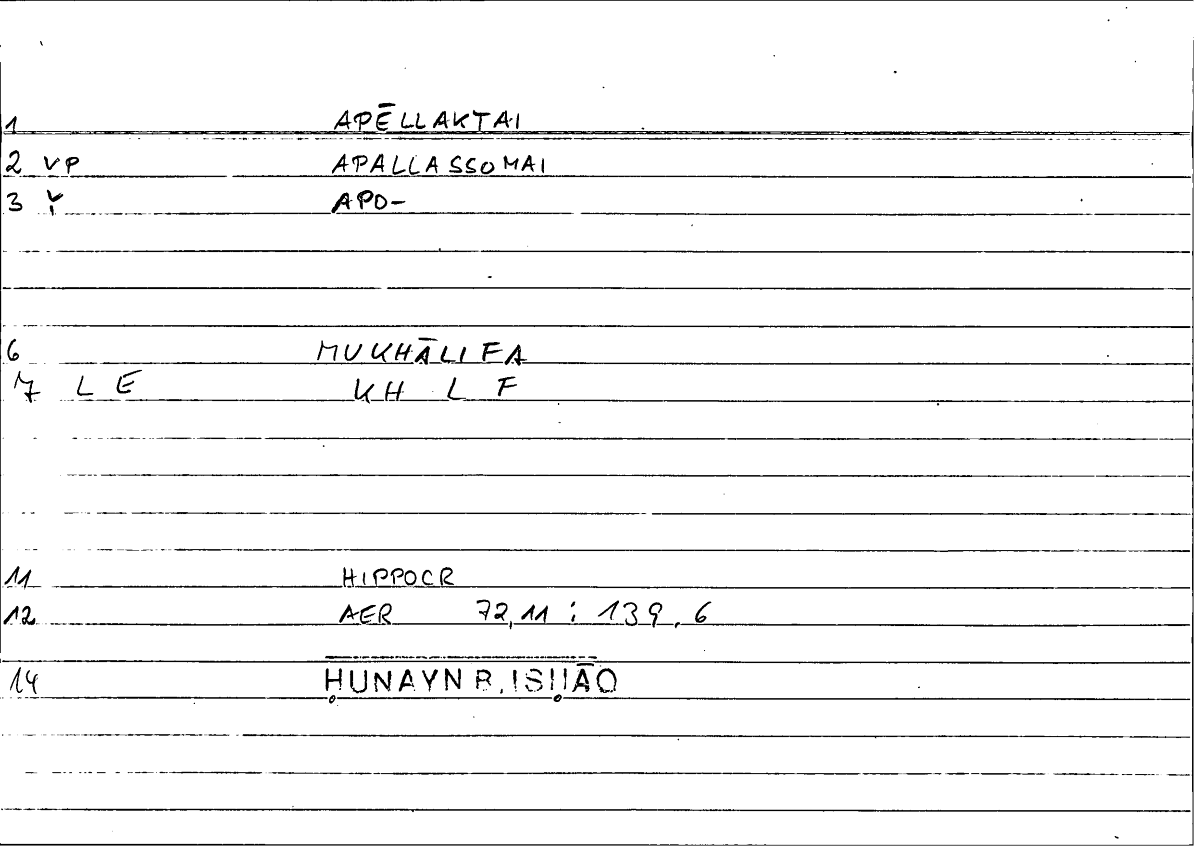 1 APĒLLAKTAI
2 VP APALLASSOMAI
3 Ỵ̌ APO-
6 MUKHĀLIFA
7 L E KH L F
11 HIPPOCR
12 AER 72,11 ; 139,6
14 ḤUNAYN B. ISḤĀQ